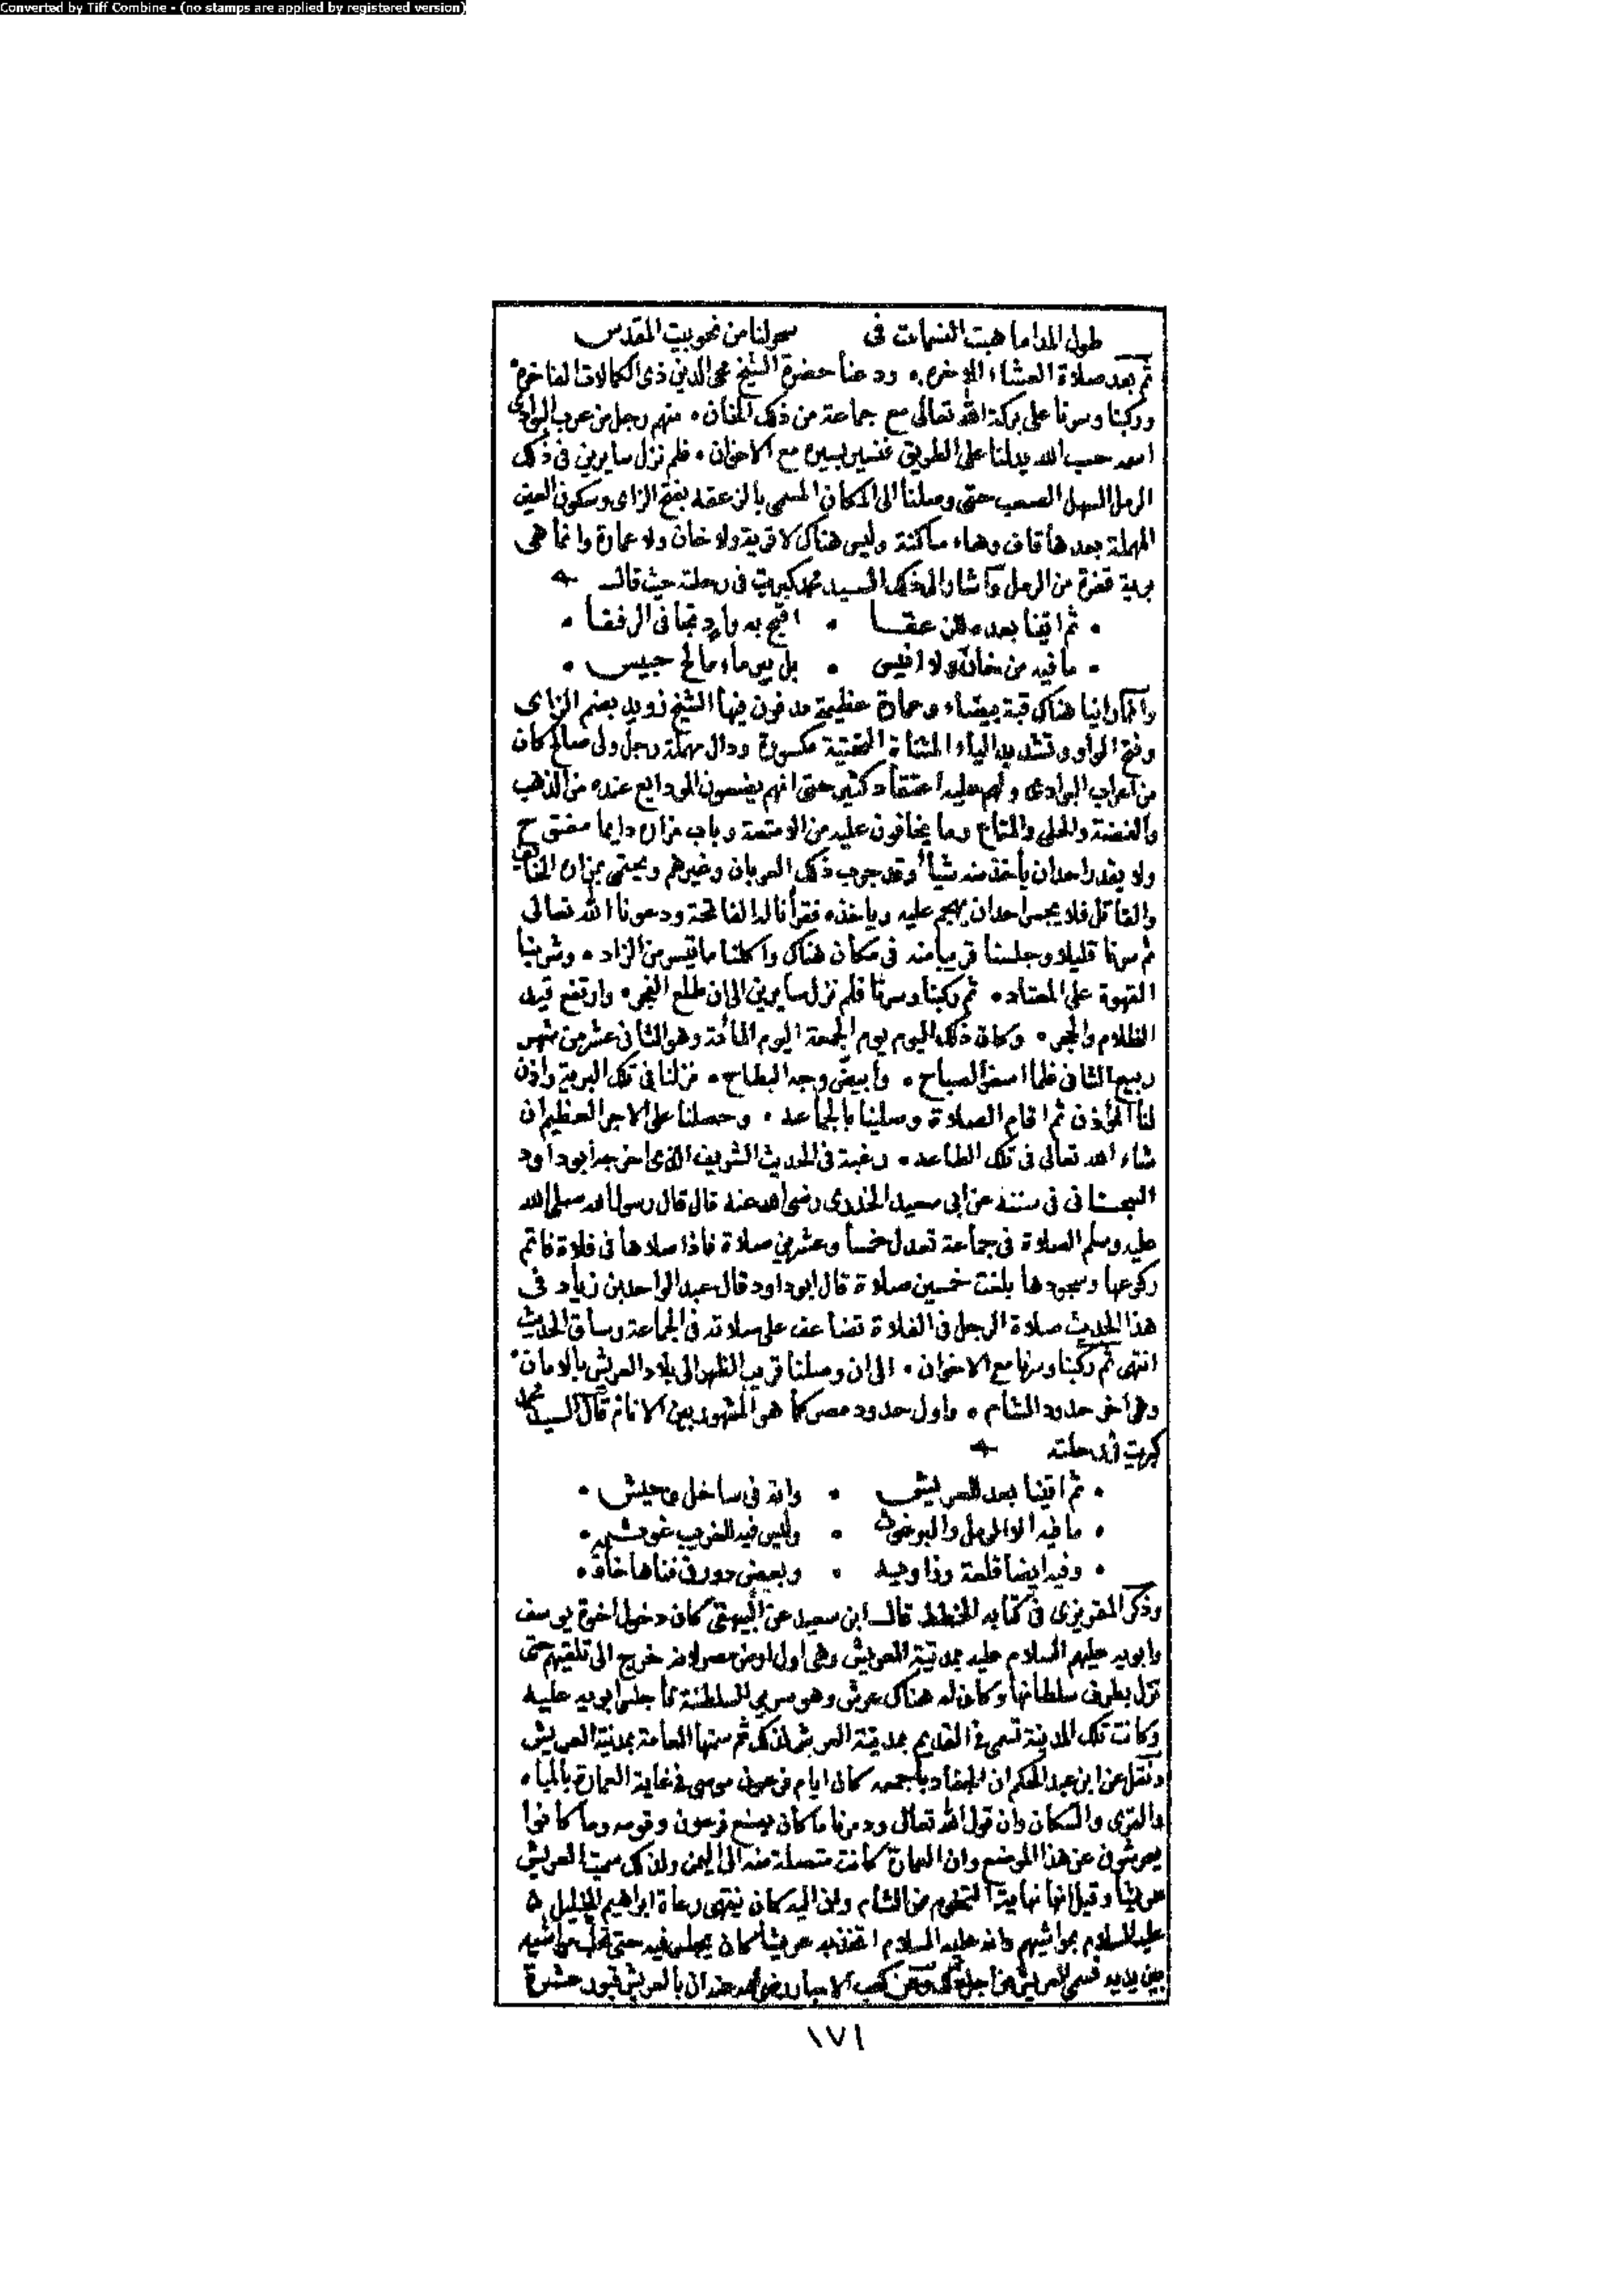 Converted by Tiff Combine - (no stamps are applied by registered version)
طول المدا ما هبت النسمات فى سحولنا من نحو بيت المقدس
ثم بعد صلاة العشاء الاخره ودعنا حضرة الشيخ محى الدين ذى الكمالات الفاخره
وركبنا وسرنا على بركة الله تعالى مع جماعة من ذلك الخان منهم رجل من عرب البوادى
اسمه حسب الله يدلنا على الطريق فنسير بسيره مع الاخوان فلم نزل سايرين فى ذلك
الرمل السهل الصعب حتى وصلنا الى المكان المسمى بالزعقه بفتح الزاى وسكون العين
المهملة بعدها قاف وهاء ساكنة وليس هناك لا قرية ولا خان ولا عمارة وانما هى
برية قفرة من الرمل واشار الى ذلك السيد محمد كبريت فى رحلته حيث قال
ثم اتينا بعده اقبح به واد تجافى الرفقا
ما فيه من خان ولا انيس بل بير ماء مالح حبيس
وانما راينا هناك قبة بيضاء وعمارة عظيمة مدفون فيها الشيخ زويد بضم الزاى
وفتح الواو وتشديد الياء المثناة التحتية مكسورة ودال مهملة رجل ولى صالح كان
من اعراب البوادى ولهم عليه اعتقاد كثير حتى انهم يضعون الودايع عنده من الذهب
والفضة والحلى والمتاع وما يخافون عليه من الامتعة وباب مزاره دايما مفتوح
ولا يقدر احد ان يأخذ منه شيأ وقد جرب ذلك العربان وغيرهم ويحتمى بمزاره الخايف
والقاتل فلا يجسر احد ان يهجم عليه وياخذه فقرأنا له الفاتحة ودعونا الله تعالى
ثم سرنا قليلا وجلسنا قريبا منه فى مكان هناك واكلنا ما تيسر من الزاد وشربنا
القهوة على المعتاد ثم ركبنا وسرنا فلم نزل سايرين الى ان طلع الفجر وارتفع قيد
الظلام والحجر وكان ذلك اليوم يوم الجمعة اليوم المائة وهو الثانى عشر من شهر
ربيع الثانى فلما اسفر الصباح وابيض وجه البطاح نزلنا فى تلك البرية واذن
لنا المؤذن ثم اقام الصلاة وصلينا بالجماعه وحصلنا على الاجر العظيم ان
شاء الله تعالى فى تلك الطاعه رغبة فى الحديث الشريف الذى اخرجه ابو داود
السجستانى فى سننه عن ابى سعيد الخدرى رضى الله عنه قال قال رسول الله صلى الله
عليه وسلم الصلاة فى جماعة تعدل خمسا وعشرين صلاة فاذا صلاها فى فلاة فاتم
ركوعها وسجودها بلغت خمسين صلاة قال ابو داود قال عبد الواحد بن زياد فى
هذا الحديث صلاة الرجل فى الفلاة تضاعف على صلاته فى الجماعة وساق الحديث
انتهى ثم ركبنا وسرنا مع الاخوان الى ان وصلنا قريب الظهر الى بلاد العريش بالامان
وهى اخر حدود الشام واول حدود مصر كما هو المشهور بين الانام قال السيد محمد
كبريت فى رحلته
ثم اتينا بعد للعريش وانه فى ساحل
ما فيه الا الرمل والبرغوث وليس فيه للغريب غوث
وفيه ايضا قلعة وزاويه وبعض دور فى فناها خاويه
وذكر المقريزى فى كتابه الخطط قال ابن سعيد عن البيهقى كان دخول اخوة يوسف
وابويه عليهم السلام عليه بمدينة العريش وهى اول ارض مصر لانه خرج الى تلقيهم حتى
نزل بطرف سلطانها وكان له هناك عرش وهو سرير السلطنة فاجلس ابويه عليه
وكانت تلك المدينة تسمى فى القديم بمدينة العرش لذلك ثم سمتها العامة بمدينة العريش
ونقل عن ابن عبد الحكم ان الجفار باجمعه كان ايام فرعون موسى فى غاية العمارة بالمياه
والقرى والسكان وان قول الله تعالى ودمرنا ما كان يصنع فرعون وقومه وما كانوا
يعرشون عن هذا الموضع وان العمارة كانت متصلة منه الى اليمن ولذلك سميت العريش
عريشا وقيل انها نهاية التخوم من الشام وان اليه كان ينتهى رعاة ابراهيم الخليل
عليه السلام بمواشيهم وانه عليه السلام اتخذ به عريشا كان يجلس فيه حتى تحلب مواشيه
بين يديه فسمى العريش من اجل ذلك وعن كعب الاحبار رضى الله عنه ان بالعريش قبور عشرة
١٧١